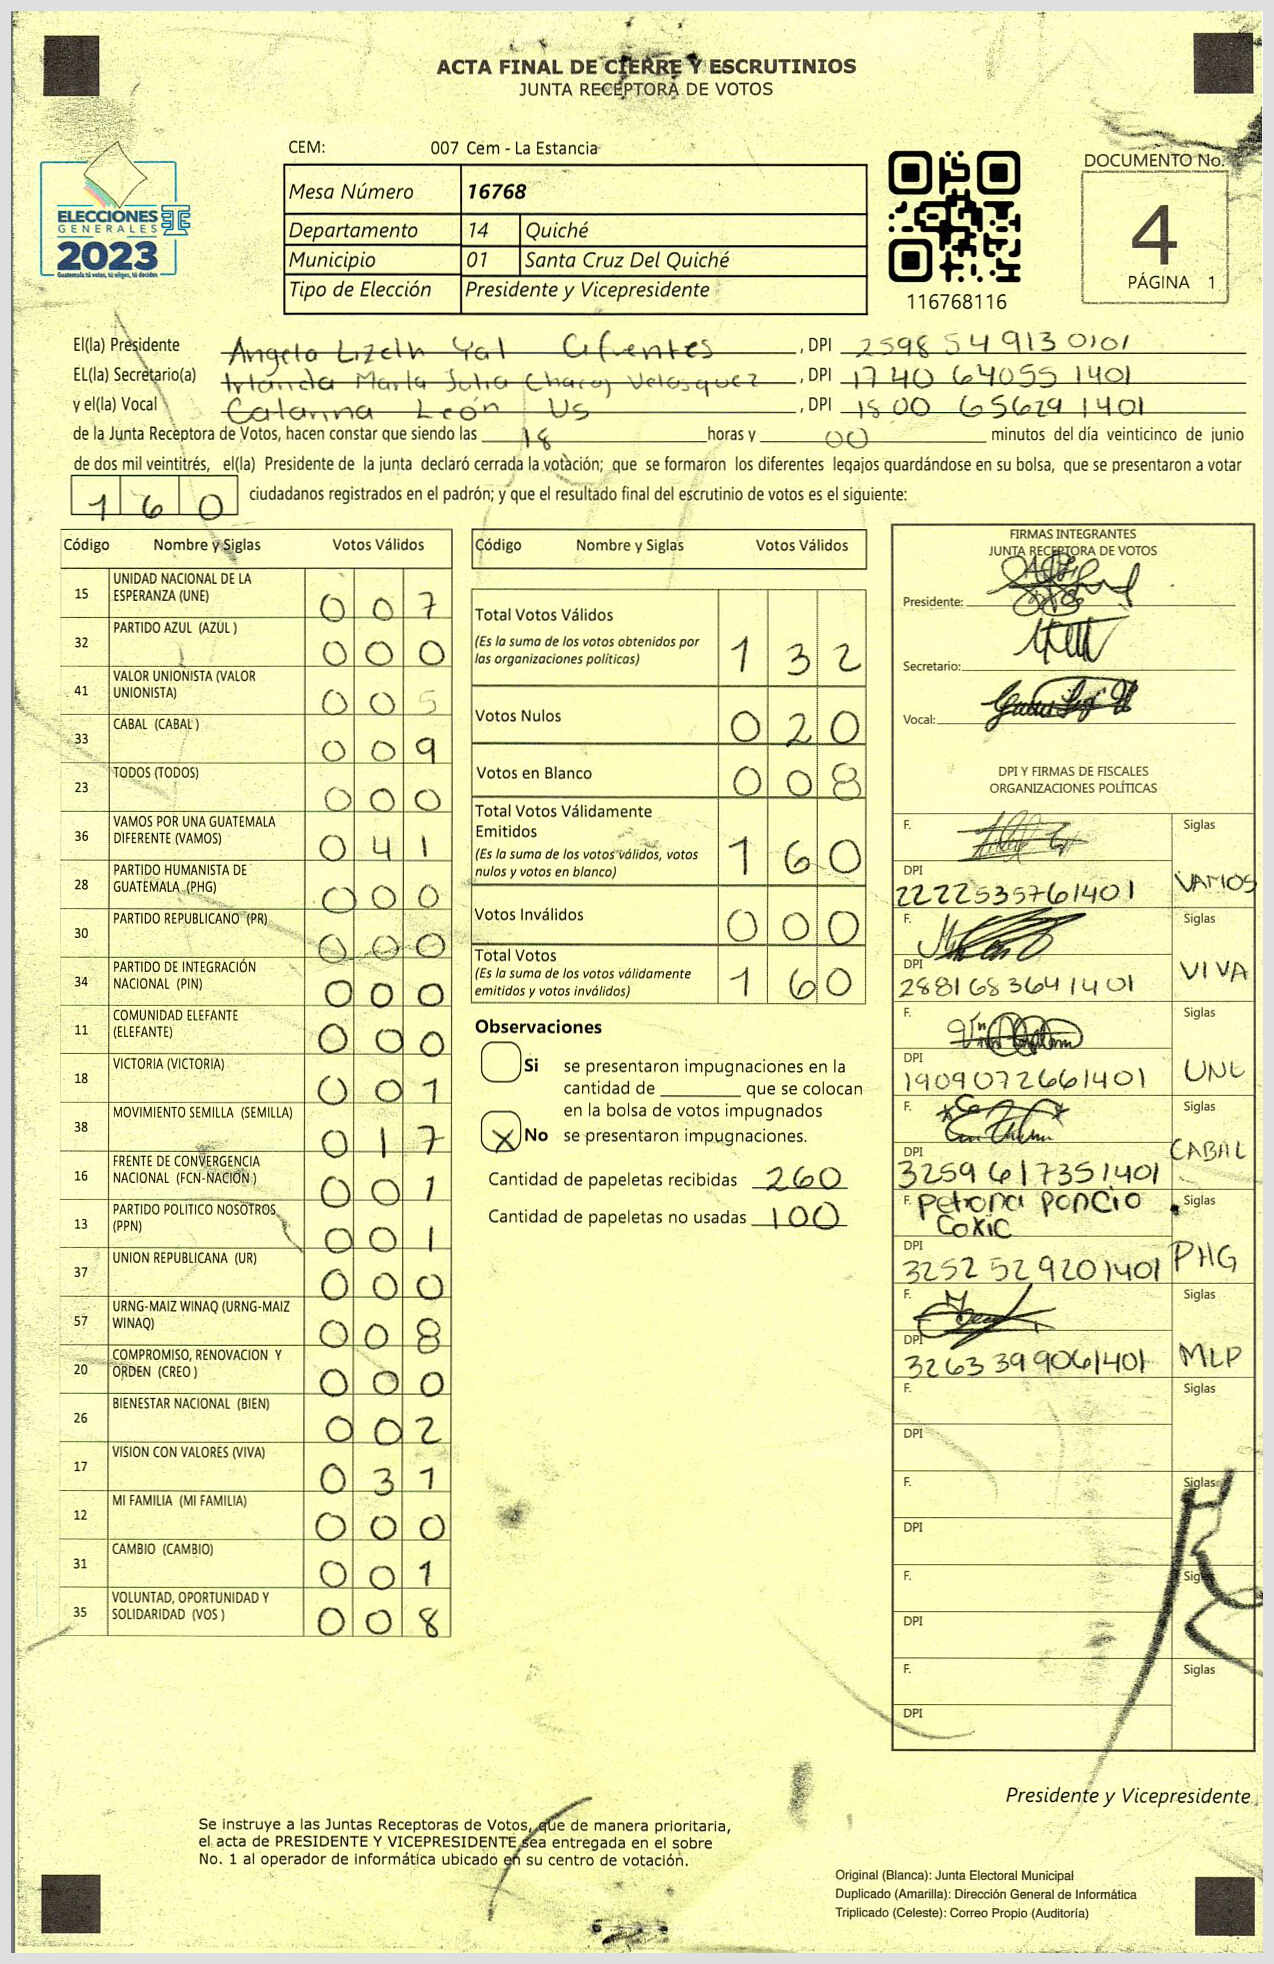 ACTA FINAL DE CIERRE Y ESCRUTINIOS
JUNTA RECEPTORA DE VOTOS
CEM: 007 Cem - La Estancia
Mesa Número 16768
Departamento 14 Quiché
Municipio 01 Santa Cruz Del Quiché
Tipo de Elección Presidente y Vicepresidente
ELECCIONES
GENERALES
2023
Guatemala tú votas, tú eliges, tú decides
116768116
DOCUMENTO No.
4
PÁGINA 1
El(la) Presidente Angela Lizeth Yat Cifuentes, DPI 2598 54913 0101
EL(la) Secretario(a) Irlanda María Julia Chacoj Velasquez, DPI 1740 64055 1401
y el(la) Vocal Catarina León Us, DPI 1800 65629 1401
de la Junta Receptora de Votos, hacen constar que siendo las 18 horas y 00 minutos del día veinticinco de junio
de dos mil veintitrés, el(la) Presidente de la junta declaró cerrada la votación; que se formaron los diferentes legajos quardándose en su bolsa, que se presentaron a votar
160 ciudadanos registrados en el padrón; y que el resultado final del escrutinio de votos es el siguiente:
Código Nombre y Siglas Votos Válidos
15 UNIDAD NACIONAL DE LA ESPERANZA (UNE) 007
32 PARTIDO AZUL (AZUL ) 000
41 VALOR UNIONISTA (VALOR UNIONISTA) 005
33 CABAL (CABAL ) 009
23 TODOS (TODOS) 000
36 VAMOS POR UNA GUATEMALA DIFERENTE (VAMOS) 041
28 PARTIDO HUMANISTA DE GUATEMALA (PHG) 000
30 PARTIDO REPUBLICANO (PR) 000
34 PARTIDO DE INTEGRACIÓN NACIONAL (PIN) 000
11 COMUNIDAD ELEFANTE (ELEFANTE) 000
18 VICTORIA (VICTORIA) 001
38 MOVIMIENTO SEMILLA (SEMILLA) 017
16 FRENTE DE CONVERGENCIA NACIONAL (FCN-NACION ) 001
13 PARTIDO POLITICO NOSOTROS (PPN) 001
37 UNION REPUBLICANA (UR) 000
57 URNG-MAIZ WINAQ (URNG-MAIZ WINAQ) 008
20 COMPROMISO, RENOVACION Y ORDEN (CREO ) 000
26 BIENESTAR NACIONAL (BIEN) 002
17 VISION CON VALORES (VIVA) 031
12 MI FAMILIA (MI FAMILIA) 000
31 CAMBIO (CAMBIO) 001
35 VOLUNTAD, OPORTUNIDAD Y SOLIDARIDAD (VOS ) 008
Código Nombre y Siglas Votos Válidos
Total Votos Válidos 132
(Es la suma de los votos obtenidos por
las organizaciones políticas)
Votos Nulos 020
Votos en Blanco 008
Total Votos Válidamente
Emitidos 160
(Es la suma de los votos válidos, votos
nulos y votos en blanco)
Votos Inválidos 000
Total Votos 160
(Es la suma de los votos válidamente
emitidos y votos inválidos)
Observaciones
Si se presentaron impugnaciones en la
cantidad de ________ que se colocan
en la bolsa de votos impugnados
X No se presentaron impugnaciones.
Cantidad de papeletas recibidas 260
Cantidad de papeletas no usadas 100
FIRMAS INTEGRANTES
JUNTA RECEPTORA DE VOTOS
Presidente:
Secretario:
Vocal:
DPI Y FIRMAS DE FISCALES
ORGANIZACIONES POLÍTICAS
F. Siglas
DPI 2222535761401 VAMOS
F. Siglas
DPI 2881683641401 VIVA
F. Siglas
DPI 1909072661401 UNE
F. Siglas
DPI 3259617351401 CABAL
F. Petrona Poncio Coxic Siglas
DPI 3252529201401 PHG
F. Siglas
DPI 3263399061401 MLP
F. Siglas
DPI
F. Siglas
DPI
F. Siglas
DPI
F. Siglas
DPI
Presidente y Vicepresidente
Se instruye a las Juntas Receptoras de Votos, que de manera prioritaria,
el acta de PRESIDENTE Y VICEPRESIDENTE sea entregada en el sobre
No. 1 al operador de informática ubicado en su centro de votación.
Original (Blanca): Junta Electoral Municipal
Duplicado (Amarilla): Dirección General de Informática
Triplicado (Celeste): Correo Propio (Auditoría)